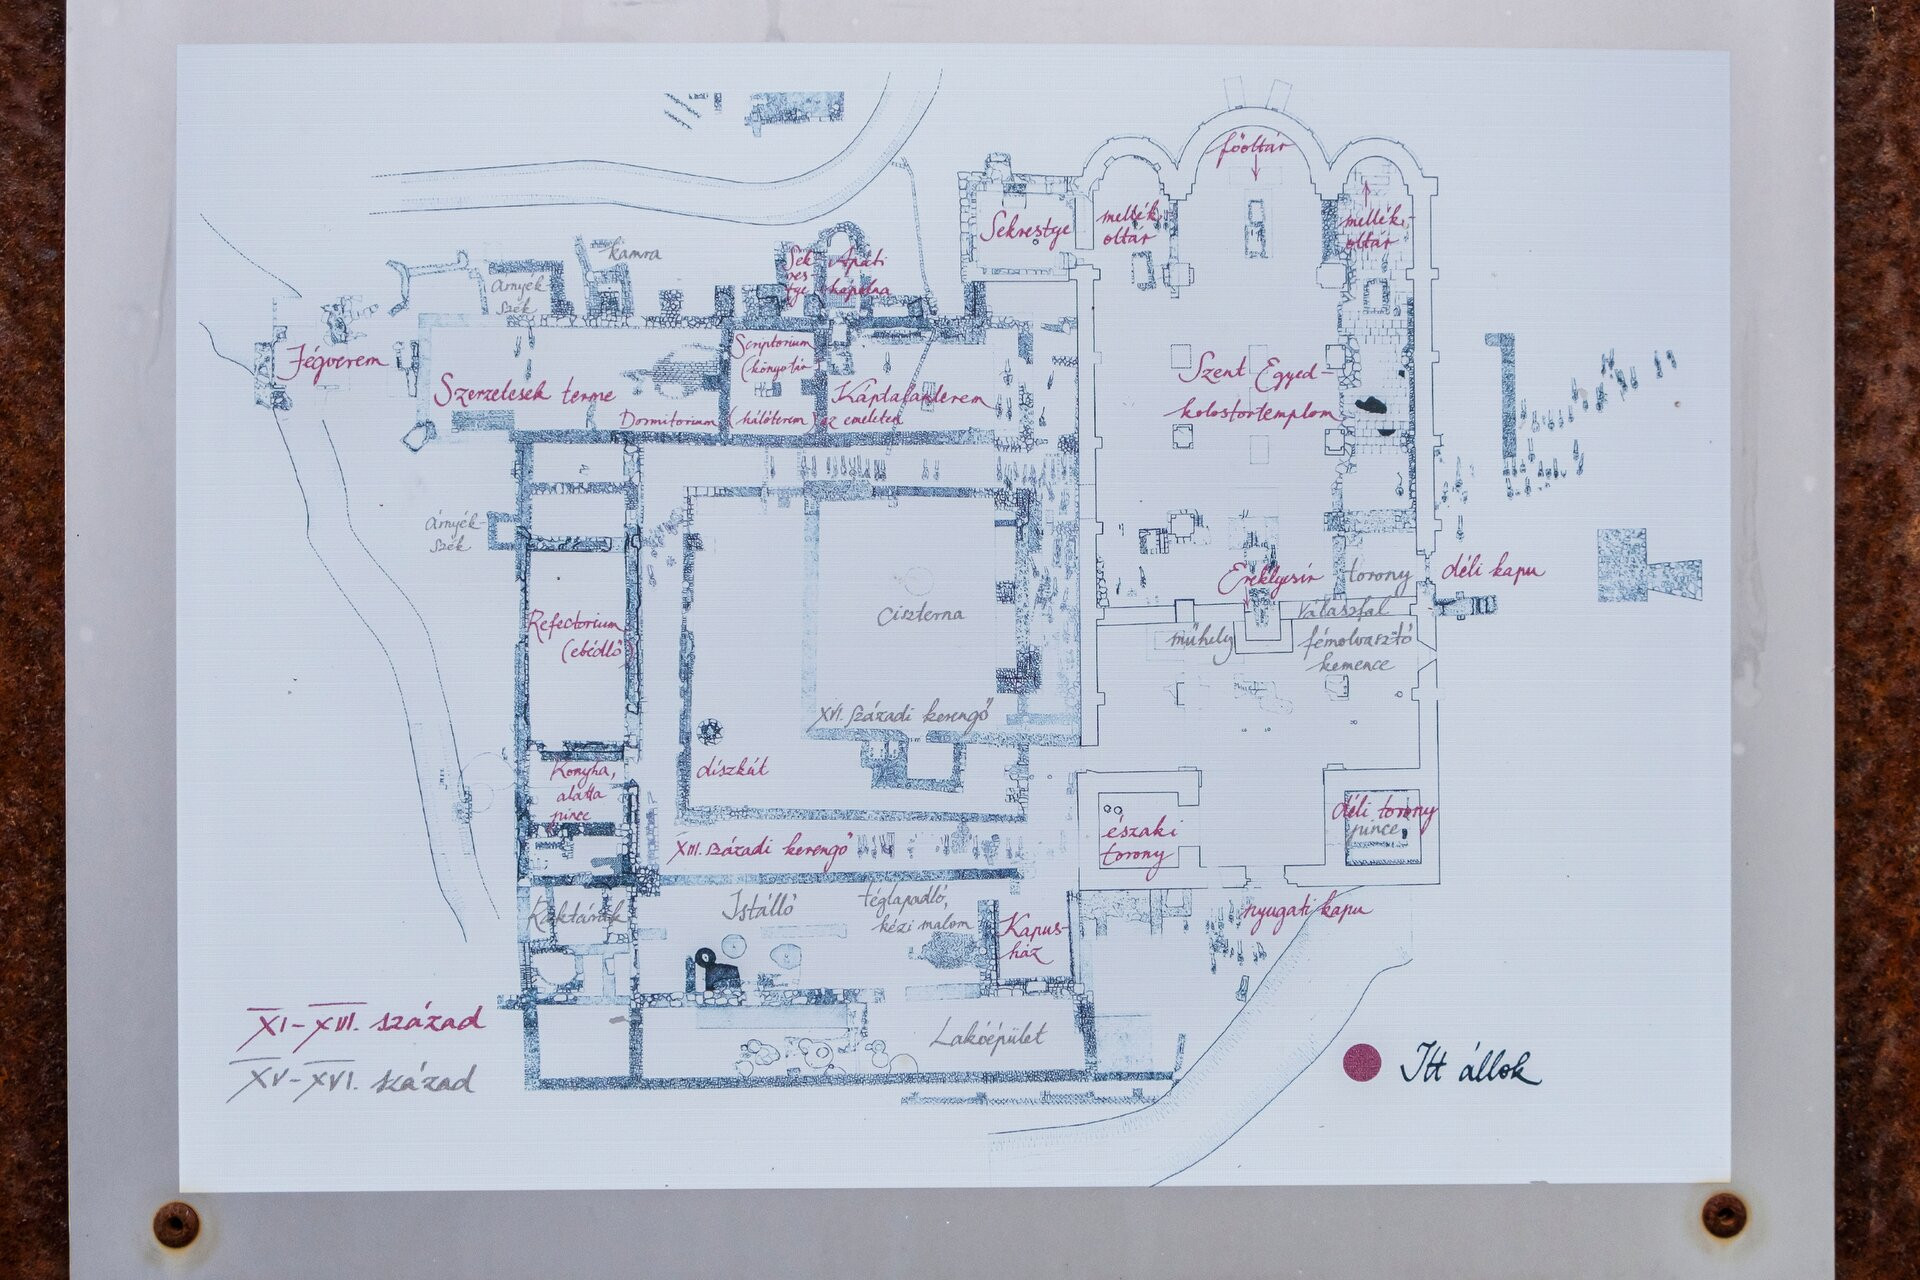 főoltár
Sekrestye
mellék-
oltár
mellék-
oltár
kamra
Árnyék-
szék
Sek-
res-
tye
Apáti
kápolna
Jégverem
Szerzetesek terme
Scriptorium
(könyvtár)
Káptalanterem
Dormitorium (hálóterem) az emeleten
Szent Egyed-
kolostortemplom
Árnyék-
szék
Refectorium
(ebédlő)
Ciszterna
Ereklyesír
torony
déli kapu
Válaszfal
műhely
fémolvasztó
kemence
XVI. századi kerengő
díszkút
Konyha,
alatta
pince
XIII. századi kerengő
északi
torony
déli torony
pince
Raktárak
Istálló
téglapadló,
kézi malom
Kapus-
ház
nyugati kapu
Lakóépület
XI-XIII. század
XV-XVI. század
Itt állok